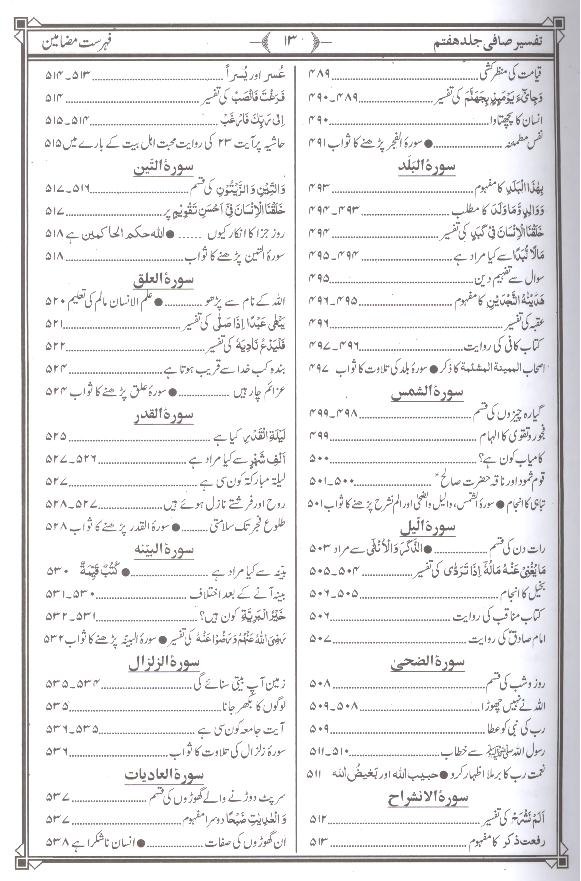 تفسیر صافی جلد ہفتم
۱۳
فہرست مضامین
قیامت کی منظر کشی ۴۸۹
وَجِایْٓءَ یَوْمَئِذٍۭ بِجَهَنَّمَ کی تفسیر ۴۸۹۔۴۹۰
انسان کا پچھتاوا ۴۹۰
نفس مطمئنہ ● سورۂ الفجر پڑھنے کا ثواب ۴۹۱
سورۂ البلد
بِهٰذَا الْبَلَدِ کا مفہوم ۴۹۳
وَوَالِدٍ وَّمَا وَلَدَ کا مطلب ۴۹۳۔۴۹۴
خَلَقْنَا الْاِنْسَانَ فِیْ كَبَدٍ کی تفسیر ۴۹۴
مَالًا لُّبَدًا سے کیا مراد ہے ۴۹۴۔۴۹۵
سوال سے تفہیم دین ۴۹۵
هَدَیْنٰهُ النَّجْدَیْنِ کا مفہوم ۴۹۵۔۴۹۶
عقبہ کی تفسیر ۴۹۶
کتاب کافی کی روایت ۴۹۶۔۴۹۷
اصحاب المیمنة المشئمة کا ذکر ● سورۂ بلد کی تلاوت کا ثواب ۴۹۷
سورۂ الشمس
گیارہ چیزوں کی قسم ۴۹۸۔۴۹۹
فجور و تقویٰ کا الہام ۴۹۹
کامیاب کون ہے؟ ۵۰۰
قوم ثمود اور ناقہ حضرت صالحؑ ۵۰۰۔۵۰۱
تباہی کا انجام ● سورۂ الشمس، واللیل، والضحیٰ اور الم نشرح پڑھنے کا ثواب ۵۰۱
سورۂ الیل
رات دن کی قسم ● الذَّكَرَ وَ الْاُنْثٰۤی سے مراد ۵۰۳
مَا یُغْنِیْ عَنْهُ مَالُهٗۤ اِذَا تَرَدّٰی کی تفسیر ۵۰۴۔۵۰۵
بخیل کا انجام ۵۰۵۔۵۰۶
کتاب مناقب کی روایت ۵۰۶
امام صادقؑ کی روایت ۵۰۷
سورۂ الضحیٰ
روز و شب کی قسم ۵۰۸
اللہ نے نہیں چھوڑا ۵۰۸۔۵۰۹
رب کی نبی کو عطا ۵۰۹
رسول اللہ ﷺ سے خطاب ۵۱۰۔۵۱۱
نعمت رب کا برملا اظہار کرو ● حبیب اللہ اور بغیض اللہ ۵۱۱
سورۂ الانشراح
اَلَمْ نَشْرَحْ کی تفسیر ۵۱۲
رفعت ذکر کا مفہوم ۵۱۳
عُسر اور یُسراً ۵۱۳۔۵۱۴
فَرَغْتَ فَانْصَبْ کی تفسیر ۵۱۴
اِلٰى رَبِّكَ فَارْغَبْ ۵۱۴۔۵۱۵
حاشیہ پر آیت ۲۳ کی روایت محبت اہل بیت کے بارے میں ۵۱۵
سورۂ التین
وَالتِّیْنِ وَالزَّیْتُوْنِ کی قسم ۵۱۶۔۵۱۷
خَلَقْنَا الْاِنْسَانَ فِیْۤ اَحْسَنِ تَقْوِیْمٍ پر ۵۱۷
روز جزا کا انکار کیوں ● اللہ حکیم الحاکمین ہے ۵۱۸
سورۂ التین پڑھنے کا ثواب ۵۱۸
سورۂ العلق
اللہ کے نام سے پڑھو ● علم الانسان مالم کی تعلیم ۵۲۰
یَنْهٰی عَبْدًا اِذَا صَلّٰی کی تفسیر ۵۲۱
فَلْیَدْعُ نَادِیَهٗ کی تفسیر ۵۲۲
بندہ کب خدا سے قریب ہوتا ہے ۵۲۴
عزائم چار ہیں ● سورۂ علق پڑھنے کا ثواب ۵۲۴
سورۂ القدر
لَیْلَةِ الْقَدْرِ کیا ہے ۵۲۵
اَلْفِ شَهْرٍ سے کیا مراد ہے ۵۲۶۔۵۲۷
لیلة مبارکة کون سی ہے ۵۲۷
روح اور فرشتے نازل ہوئے ہیں ۵۲۷۔۵۲۸
طلوع فجر تک سلامتی ● سورۂ القدر پڑھنے کا ثواب ۵۲۸
سورۂ البینہ
بینہ سے کیا مراد ہے ● كُتُبٌ قَیِّمَةٌ ۵۳۰
بینہ آنے کے بعد اختلاف ۵۳۰۔۵۳۱
خَیْرُ الْبَرِیَّةِ کون ہیں؟ ۵۳۱۔۵۳۲
رَضِیَ اللّٰهُ عَنْهُمْ وَ رَضُوْا عَنْهُ کی تفسیر ● سورۂ البینہ پڑھنے کا ثواب ۵۳۲
سورۂ الزلزال
زمین آپ بیتی سنائے گی ۵۳۴۔۵۳۵
لوگوں کا بکھر جانا ۵۳۵
آیت جامعہ کون سی ہے ۵۳۵۔۵۳۶
سورۂ زلزال کی تلاوت کا ثواب ۵۳۶
سورۂ العادیات
سرپٹ دوڑنے والے گھوڑوں کی قسم ۵۳۷
وَالْعٰدِیٰتِ ضَبْحًا دوسرا مفہوم ۵۳۷
ان گھوڑوں کی صفات ● انسان ناشکرا ہے ۵۳۸